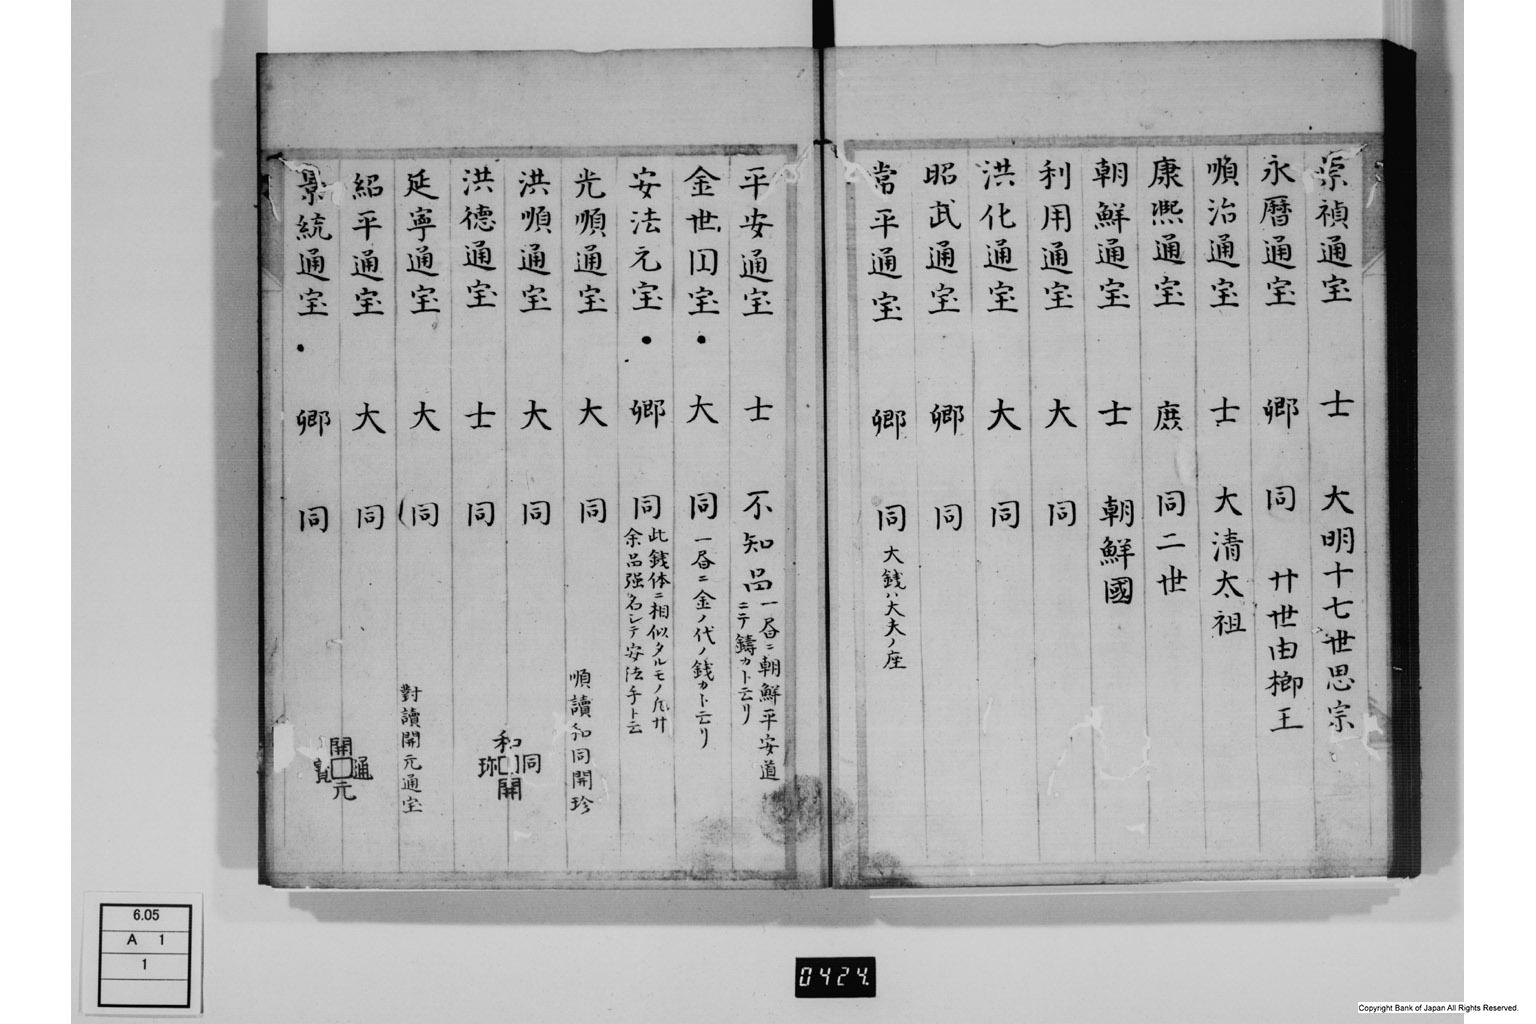 崇禎通宝 士 大明十七世思宗
永暦通宝 卿 同 廿世由榔王
順治通宝 士 大清太祖
康熈通宝 庶 同二世
朝鮮通宝 士 朝鮮國
利用通宝 大 同
洪化通宝 大 同
昭武通宝 卿 同
常平通宝 卿 同 大銭ハ大夫ノ座
平安通宝 士 不知品
一品ニ朝鮮平安道
ニテ鑄カト云リ
金世囯宝・ 大 同 一品ニ金ノ代ノ銭カト云リ
安法元宝・ 卿 同
此銭体ニ相似タルモノ凡廿
余品强名シテ安法手ト云
光順通宝 大 同
順讀和同開珍
洪順通宝 大 同
洪德通宝 士 同
和同開珎
延寧通宝 大 同
對讀開元通宝
紹平通宝 大 同
景統通宝・ 卿 同
開通元寳
6.05
A 1
1
0424.
Copyright Bank of Japan All Rights Reserved.